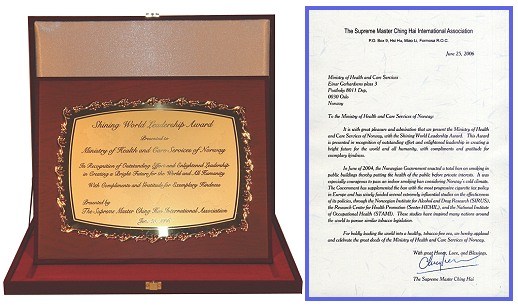 Shining World Leadership Award
Presented to
Ministry of Health and Care Services of Norway
In Recognition of Outstanding Effort and Enlightened Leadership
in Creating a Bright Future for the World and All Humanity
With Compliments and Gratitude for Exemplary Kindness
Presented by
The Supreme Master Ching Hai International Association
The Supreme Master Ching Hai International Association
P.O. Box 9, Hsi Hu, Miao Li, Formosa R.O.C.
June 25, 2006
Ministry of Health and Care Services
Einar Gerhardsens plass 3
Postboks 8011 Dep,
0030 Oslo
Norway
To the Ministry of Health and Care Services of Norway:
It is with great pleasure and admiration that we present the Ministry of Health
and Care Services of Norway, with the Shining World Leadership Award. This Award
is presented in recognition of outstanding effort and enlightened leadership in creating a
bright future for the world and all humanity, with compliments and gratitude for
exemplary kindness.
In June of 2004, the Norwegian Government enacted a total ban on smoking in
public buildings thereby putting the health of the public before private interests. It was
especially courageous to pass an indoor smoking ban considering Norway's cold climate.
The Government has supplemented the ban with the most progressive cigarette tax policy
in Europe and has wisely funded several extremely influential studies on the effectiveness
of its policies, through the Norwegian Institute for Alcohol and Drug Research (SIRUS),
the Research Center for Health Promotion (Senter-HEMIL), and the National Institute
of Occupational Health (STAMI). These studies have inspired many nations around
the world to pursue similar tobacco legislation.
For boldly leading the world into a healthy, tobacco-free era, we hereby applaud
and celebrate the great deeds of the Ministry of Health and Care Services of Norway.
With great Honor, Love, and Blessings,
The Supreme Master Ching Hai